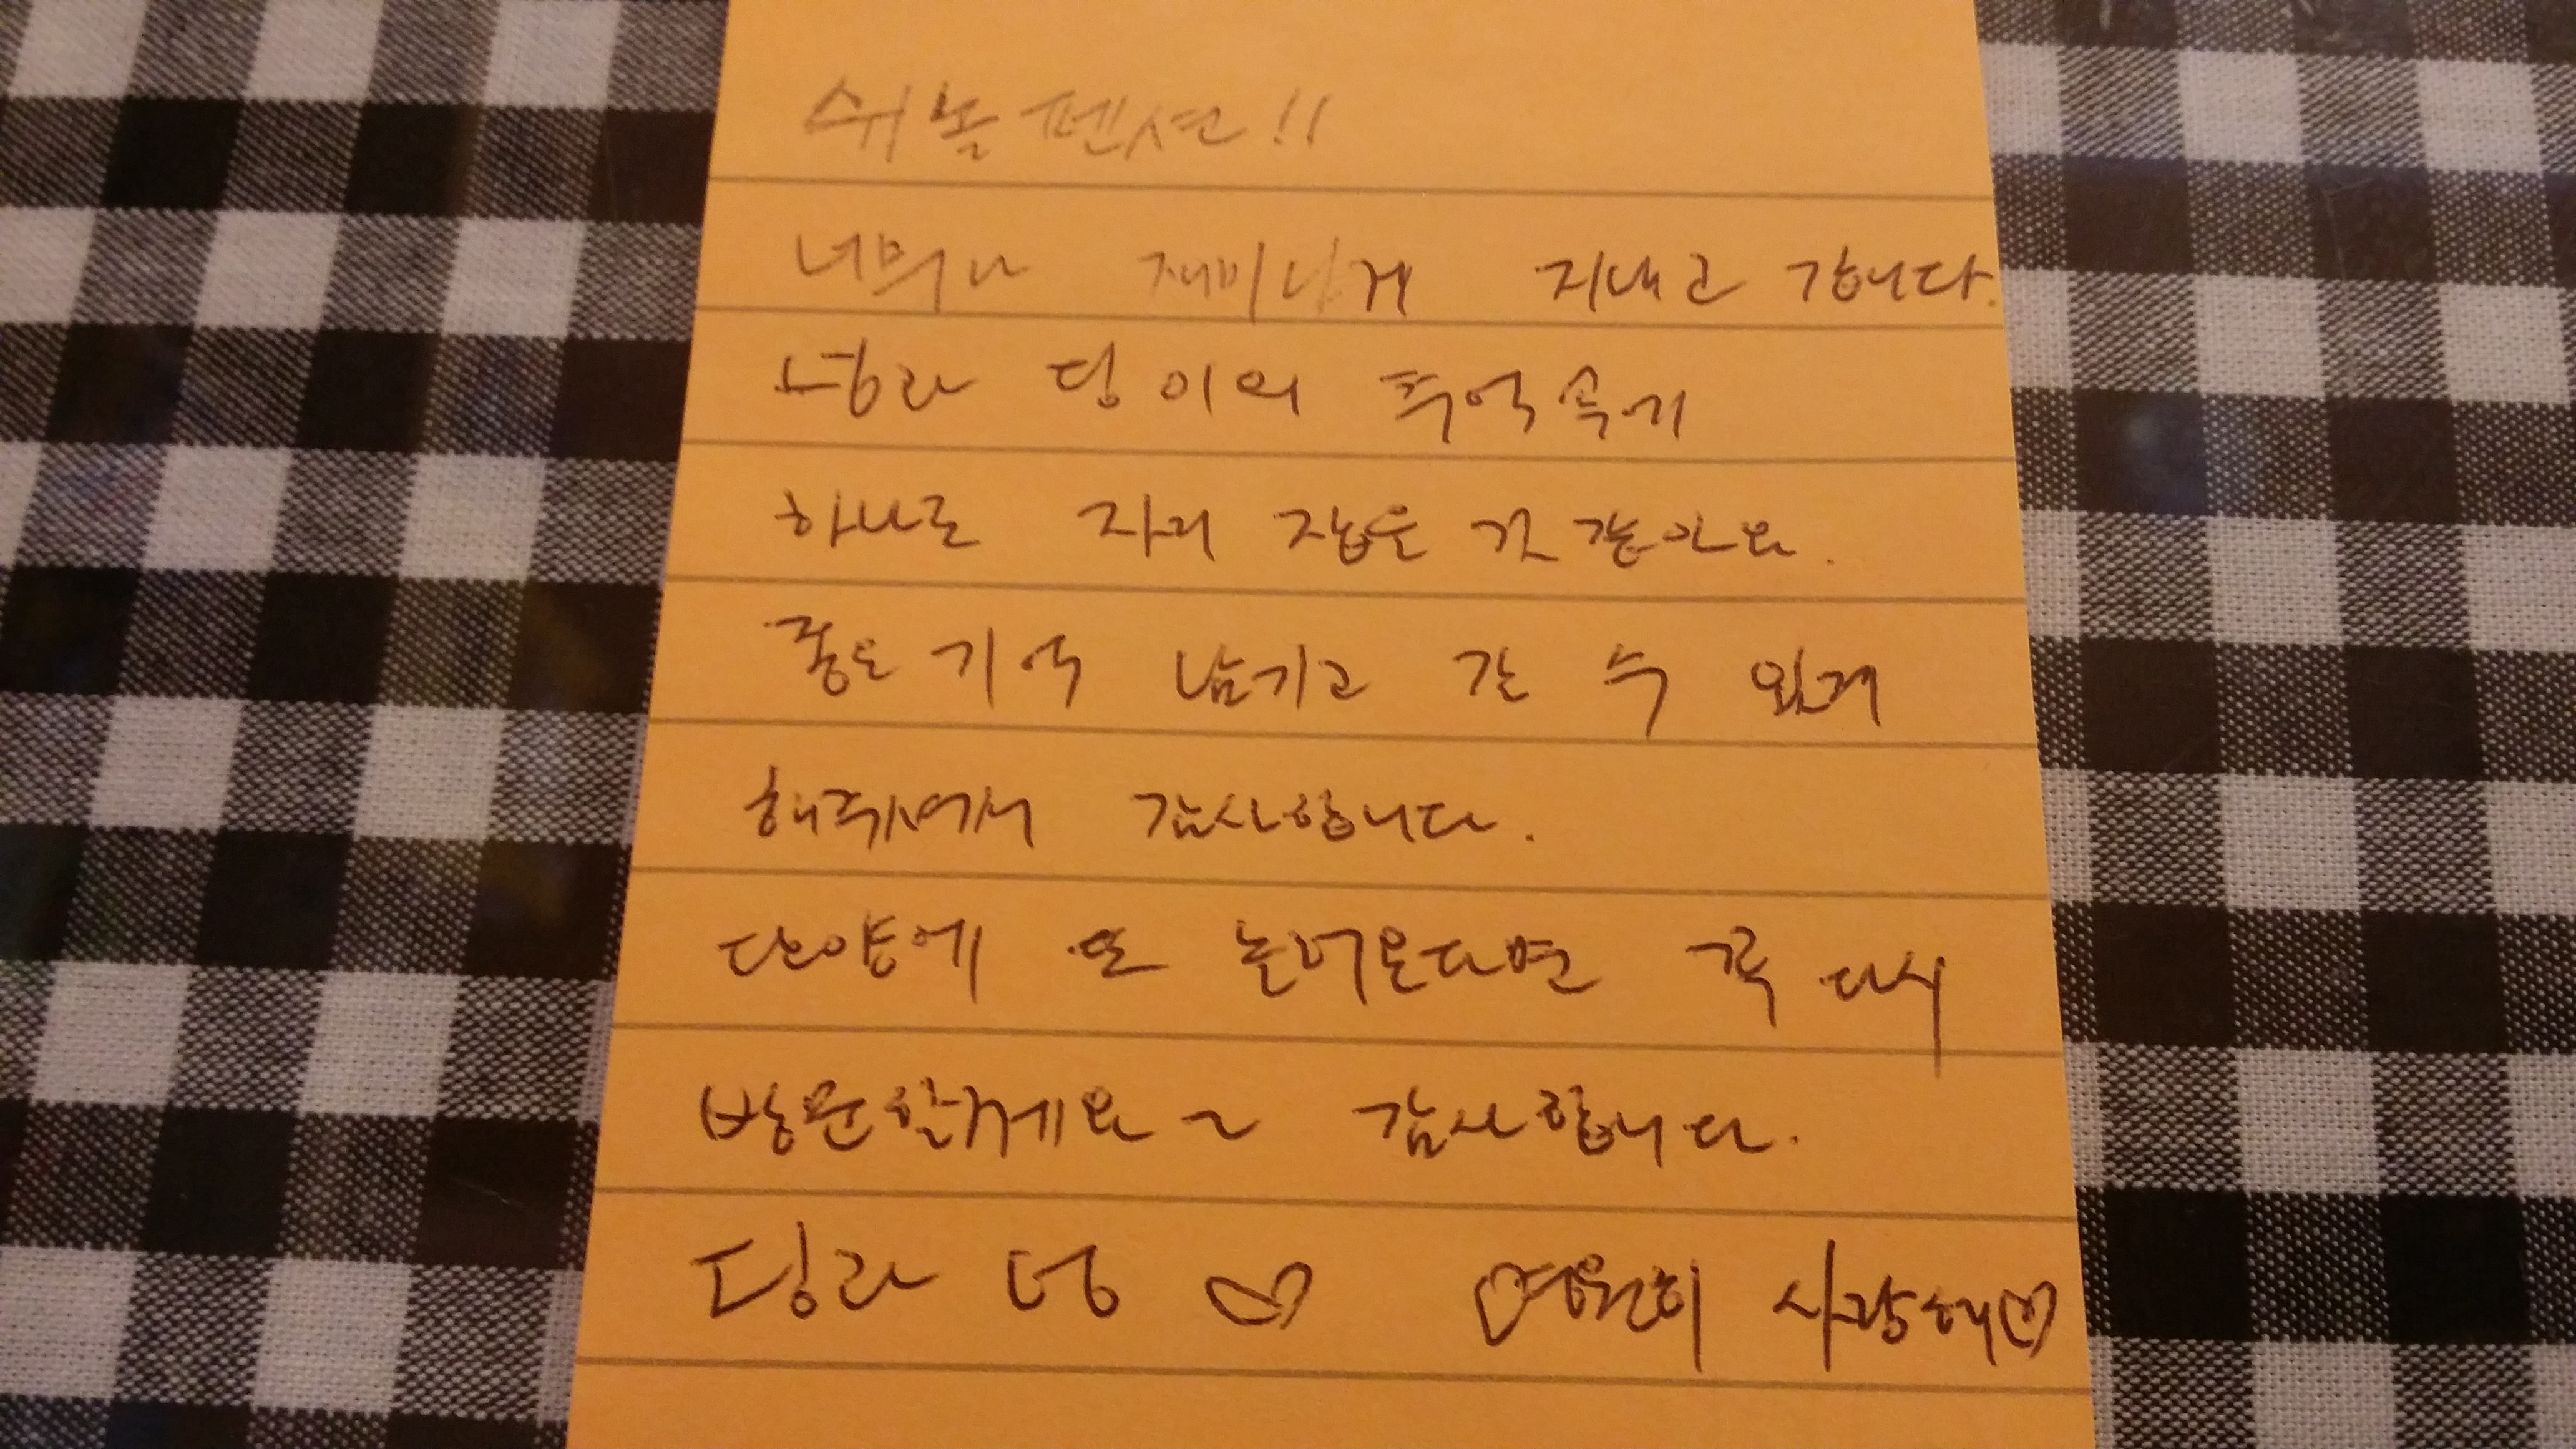 쉬놀펜션!!
너무나 재미나게 지내고 갑니다.
덩이의 추억속에
하나로 자리 잡은 것 같아요.
좋은 기억 남기고 갈 수 있게
해주셔서 감사합니다.
단양에 또 놀러온다면 꼭 다시
방문할게요~ 감사합니다.
딩과 덩 ♡ ♡영원히 사랑해♡